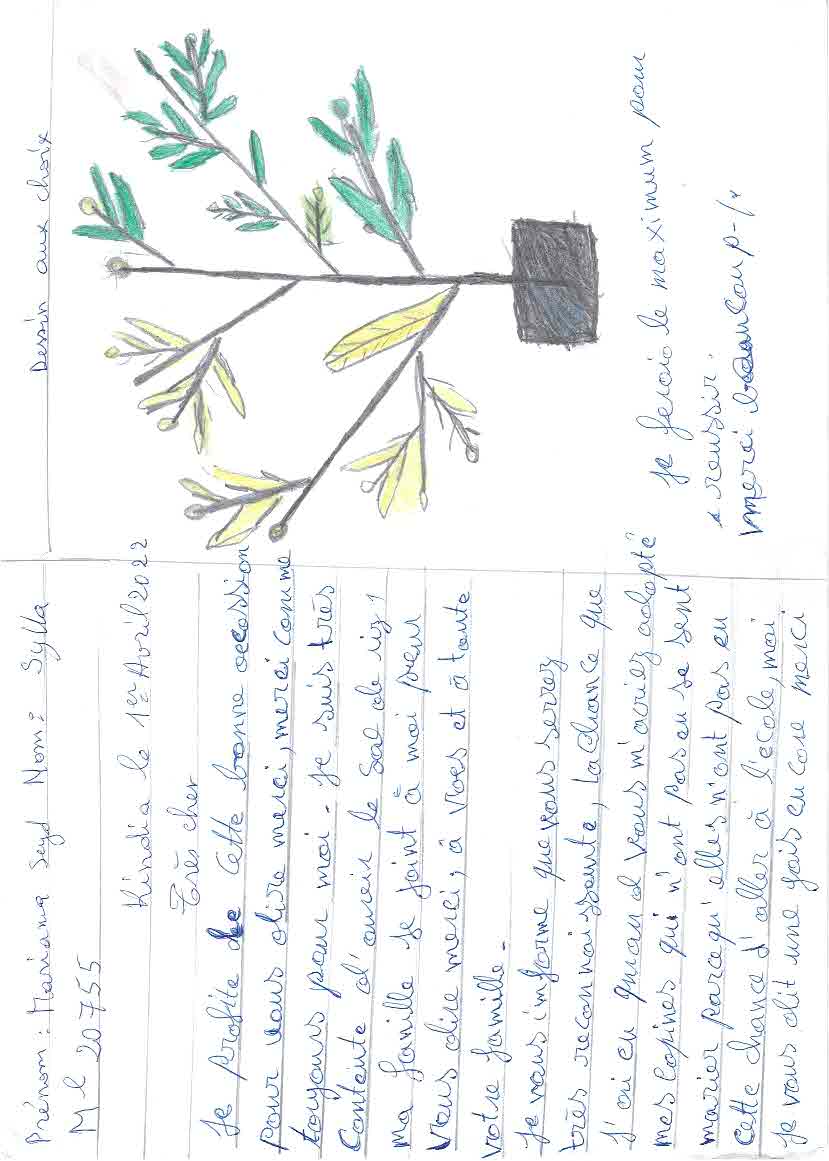 Prénom : Mariama Seyd Nom : Sylla
Ml 20755
Kindia le 1er Avril 2022
Très cher
Je profite de cette bonne occassion
pour vous dire merci, merci comme
toujours pour moi. Je suis très
Contente d'avoir le sac de riz,
ma famille se joint à moi pour
Vous dire merci, à vous et à toute
votre famille.
Je vous informe que vous serrez
très reconnaissante, la chance que
J'ai eu quand vous m'aviez adopté
mes copines qui n'ont pas eu se sent
marier parcequ'elles n'ont pas eu
cette chance d'aller à l'école, moi
je vous dit une fois encore merci
Dessin aux choix
je ferais le maximum pour
reussir.
merci beaucoup